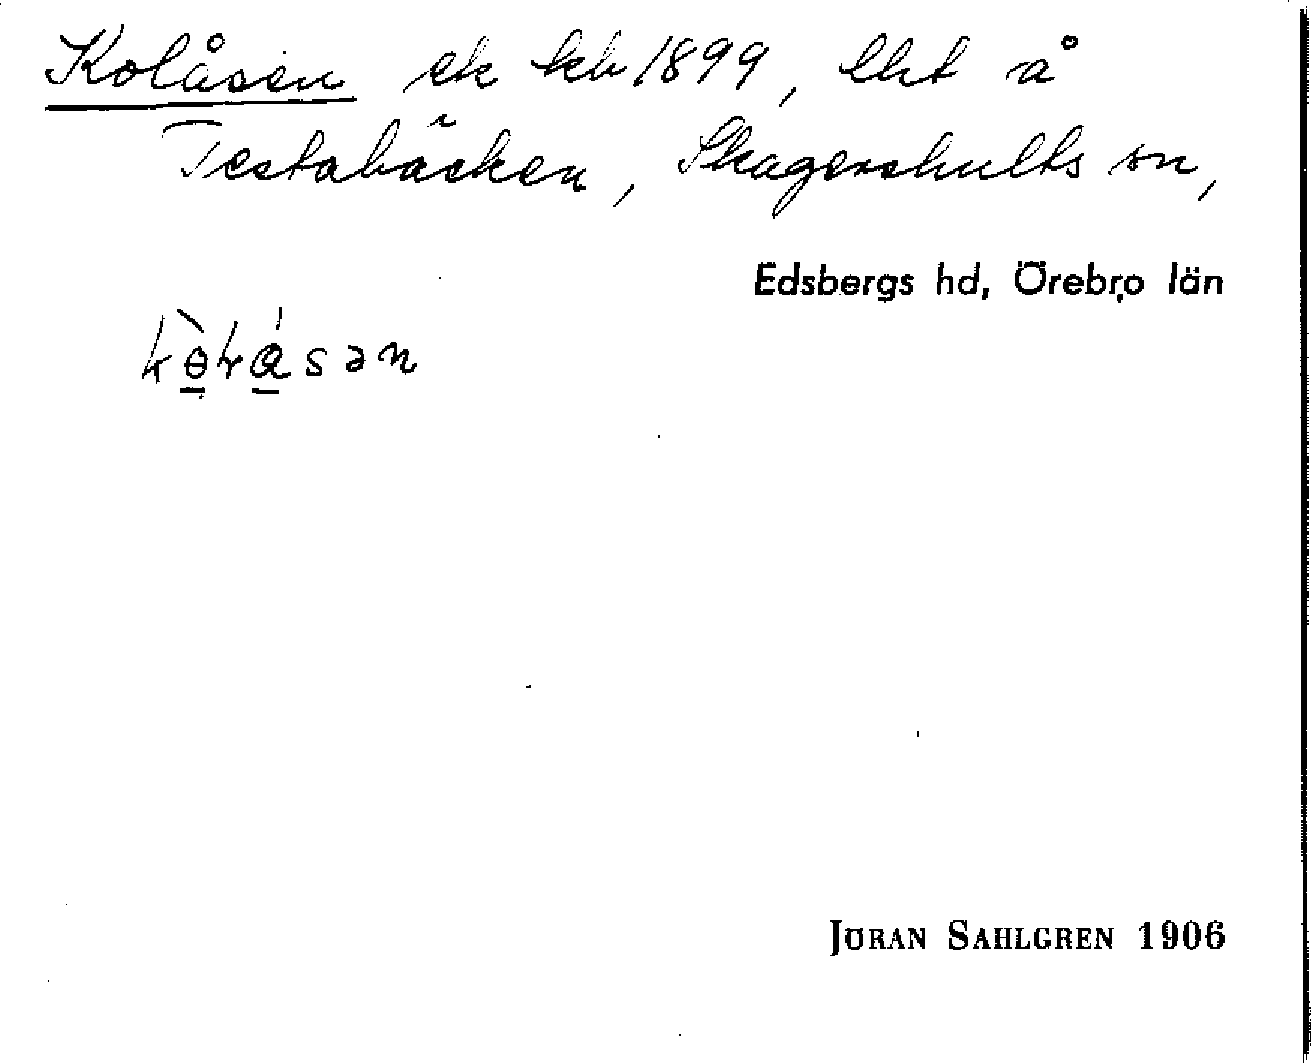 Kolåsen ek kb 1899, lht å
Testabäcken, Skagershults sn,
Edsbergs hd, Örebro län
Jöran Sahlgren 1906